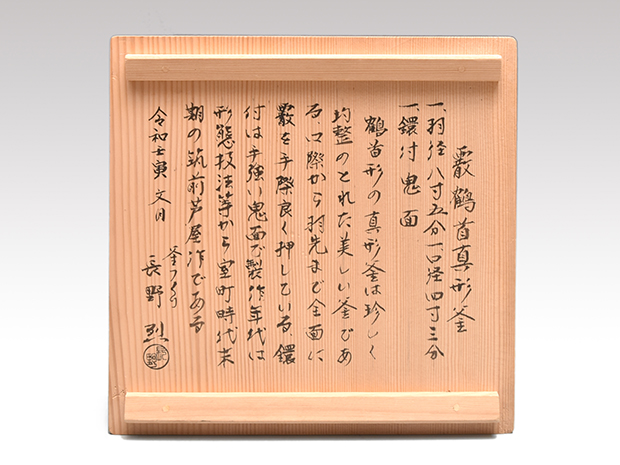 霰鶴首真形釜
一、羽径八寸五分一口径四寸三分
一、鐶付鬼面
鶴首形の真形釜は珍しく
均整のとれた美しい釜であ
る、口際から羽先まで全面に
霰を手際良く押している、鐶
付は手強い鬼面で製作年代は
形態技法等から室町時代末
期の筑前芦屋作である
令和壬寅文月
釜つくり
長野烈